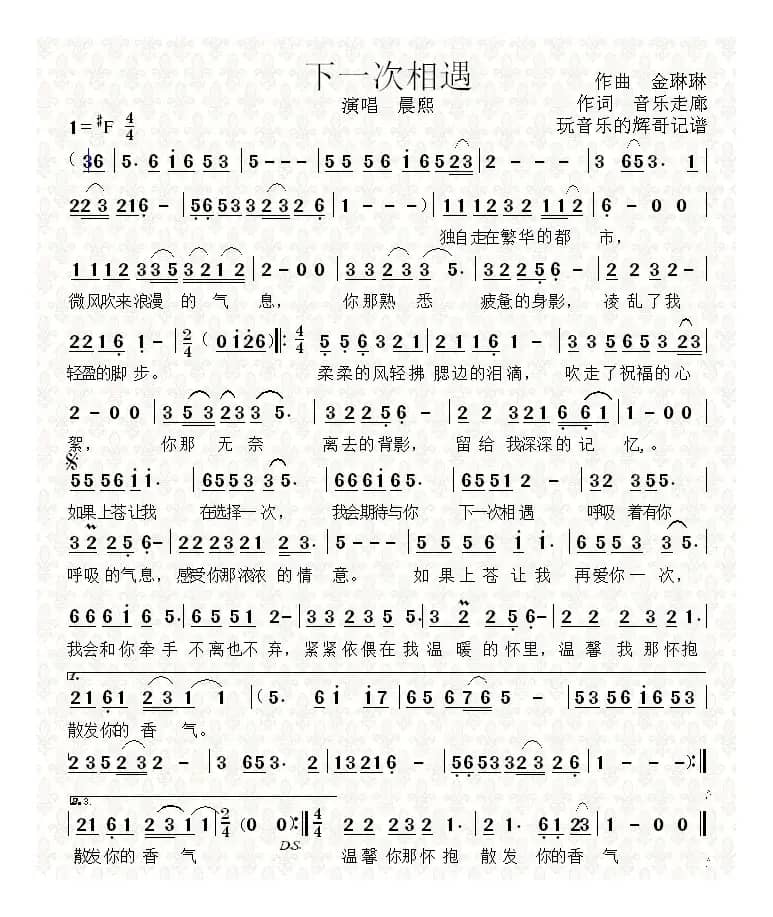 下一次相遇
作曲 金琳琳
演唱 晨熙
作词 音乐走廊
1=#F 4/4
玩音乐的辉哥记谱
(36|5. 6 i 6 5 3|5 - - -|5 5 5 6 i 6 5 2 3|2 - - -|3 6 5 3. 1|
2 2 3 2 1 6 -|5 6 5 3 3 2 3 2 6|1 - - -)|1 1 1 2 3 2 1 1 2|6 - 0 0|
独自走在繁华的都 市,
1 1 1 2 3 3 5 3 2 1 2|2 - 0 0|3 3 2 3 3 5.|3 2 2 5 6 -|2 2 3 2 -|
微风吹来浪漫 的 气 息, 你那熟 悉 疲惫的身影, 凌乱了我
2 2 1 6 1 -|2/4 (0 i 2 6)‖: 4/4 5 5 6 3 2 1|2 1 1 6 1 -|3 3 5 6 5 3 2 3|
轻盈的脚 步。 柔柔的风轻拂 腮边的泪滴, 吹走了祝福的心
2 - 0 0|3 5 3 2 3 3 5.|3 2 2 5 6 -|2 2 3 2 1 6 6 1|1 - 0 0|
絮, 你那 无奈 离去的背影, 留给我深深的记 忆,。
5 5 5 6 i i.|6 5 5 3 3 5.|6 6 6 i 6 5.|6 5 5 1 2 -|3 2 3 5 5.|
如果上苍让我 在选择一次, 我会期待与你 下一次相遇 呼吸 着有你
3 2 2 5 6 -|2 2 2 3 2 1 2 3.|5 - - -|5 5 5 6 i i.|6 5 5 3 3 5.|
呼吸的气息, 感受你那浓浓 的情 意。 如果上苍让我 再爱你一次,
6 6 6 i 6 5.|6 5 5 1 2 -|3 3 3 2 3 5 5.|3 2 2 5 6 -|2 2 2 3 2 1.|
我会和你牵手 不离也不弃, 紧紧依偎在我 温暖的怀里, 温馨我那怀抱
1.
2 1 6 1 2 3 1 1|(5. 6 i i 7|6 5 6 7 6 5 -|5 3 5 6 i 6 5 3|
散发你的 香 气。
2 3 5 2 3 2 -|3 6 5 3. 2|1 3 2 1 6 -|5 6 5 3 3 2 3 2 6|1 - - -):‖
2. 3.
|2 1 6 1 2 3 1 1|2/4 (0 0):‖ 4/4 2 2 2 3 2 1.|2 1. 6 1 2 3|1 - 0 0‖
D.S.
散发你的 香 气 温馨你那怀抱 散发 你的香气